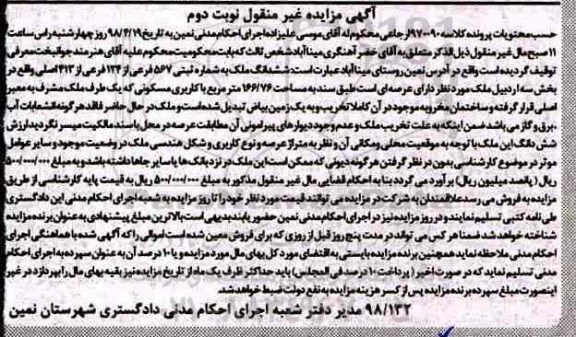 آگهی مزایده غیر منقول نوبت دوم
حسب محتویات پرونده کلاسه ۹۷۰۰۹۰ اجرایی محکوم له آقای موسی علیزاده اجرای احکام مدنی نمین به تاریخ ۹۸/۴/۱۹ روز چهارشنبه راس ساعت
۱۱ صبح مال غیر منقول ذیل الذکر متعلق به آقای خضر آهنگری میناآباد شخص ثالث که بابت محکومیت محکوم علیه آقای هنرمند جوانبخت معرفی
توقیف گردیده است واقع در آدرس نمین روستای میناآباد عبارت است: ششدانگ ملک به شماره ثبتی ۵۶۷ فرعی از ۱۳۴ فرعی از ۴۱۳ اصلی واقع در
بخش سه اردبیل ملک مورد نظر دارای عرصه ای است طبق سند به مساحت ۱۶۶/۷۶ متر مربع با کاربری مسکونی که یک طرف ملک مشرف به معبر
اصلی قرار گرفته و ساختمان مخروبه موجود در آن کاملا تخریب و به یک زمین بیاض تبدیل شده است و ملک در حال حاضر فاقد هرگونه انشعابات آب
،برق و گاز می باشد ضمن اینکه به علت تخریب ملک و عدم وجود دیوارهای پیرامونی آن مطابقت عرصه در محل با سند مالکیت میسر نگردید ارزش
شش دانگ این ملک با توجه به موقعیت محلی و مکانی آن و نظر به متراژ عرصه و نوع کاربری و شکل هندسی ملک در وضعیت موجود و سایر عوامل
موثر در موضوع کارشناسی بدون در نظر گرفتن هر گونه دیونی که ممکن است این ملک در نزد بانک ها یا سایر جاها داشته باشد و به مبلغ ۵۰۰/۰۰۰/۰۰۰
ریال ( پانصد میلیون ریال) برآورد می گردد بنا به احکام قضایی مال غیر منقول مذکور به مبلغ ۵۰۰/۰۰۰/۰۰۰ ریال به قیمت پایه کارشناسی از طریق
مزایده به فروش می رسد علاقمندان به شرکت در مزایده می توانند قیمت مورد نظر خود را تا روز مزایده به شعبه اجرای احکام مدنی این دادگستری
طی نامه کتبی تسلیم نمایند و در روز مزایده نیز در اجرای احکام مدنی نمین حضور یابند بدیهی است بالاترین مبلغ پیشنهادی به عنوان برنده مزایده
شناخته خواهد شد ضمنا هر کس می تواند در مدت پنج روز قبل از روزی که برای فروش معین شده است اموالی را که آگهی شده با هماهنگی اجرای
احکام مدنی ملاحظه نماید همچنین برنده مزایده بایستی به اقتضای مورد کل بهای مال مورد مزایده و یا ۱۰ درصد آن به عنوان سپرده به اجرای احکام
مدنی تسلیم نماید که در صورت اخیر ( پرداخت ۱۰ درصد فی المجلس) باید حداکثر ظرف یک ماه از تاریخ مزایده نیز بقیه بهای مال را بپردازد در غیر
اینصورت مبلغ سپرده برنده مزایده پس از کسر هزینه مزایده به نفع دولت ضبط خواهد شد.
۹۸/۱۳۲ مدیر دفتر شعبه اجرای احکام مدنی دادگستری شهرستان نمین